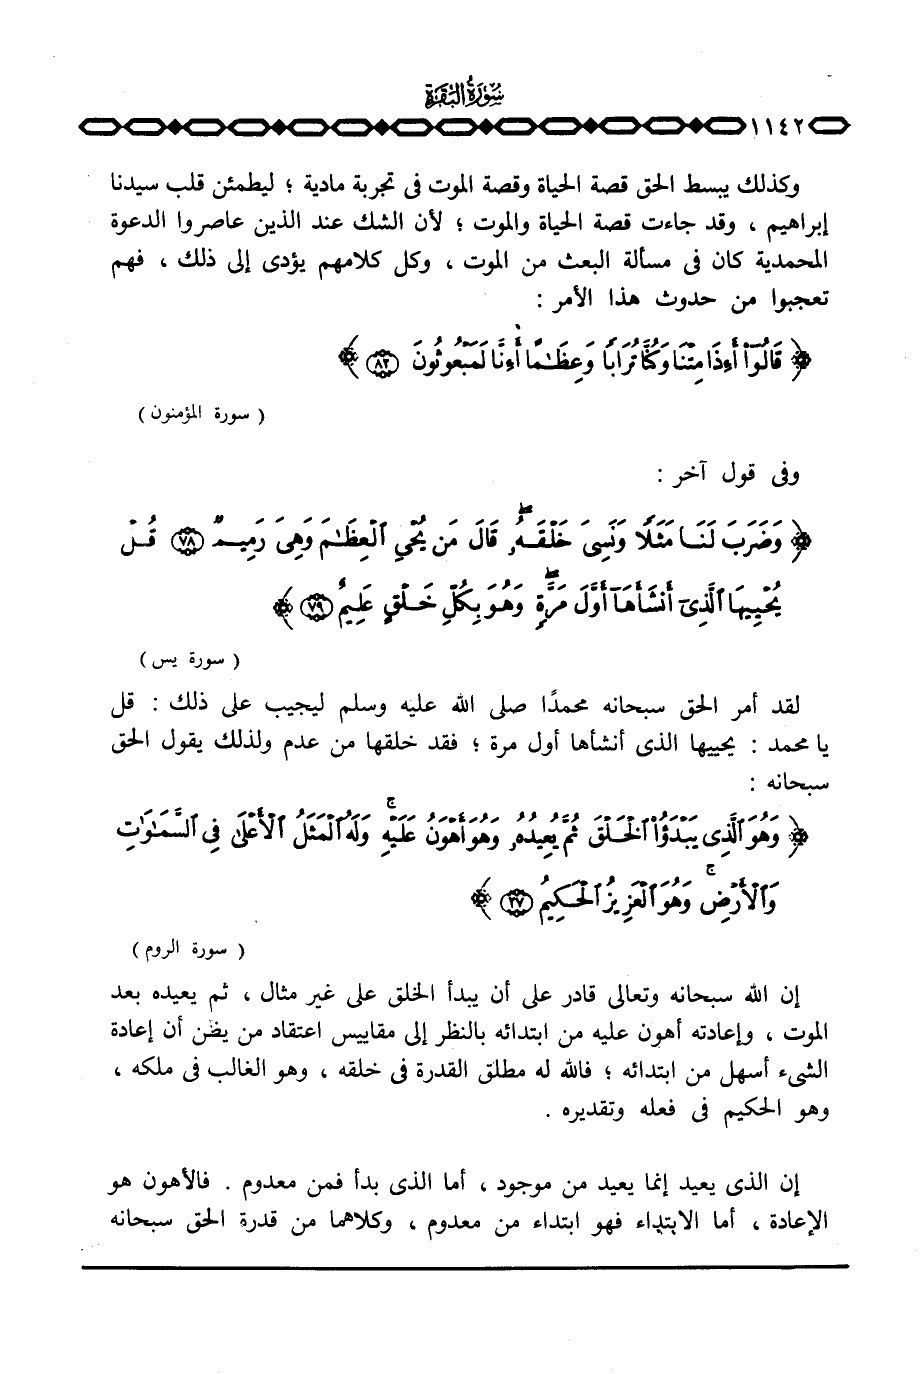 سُورَةُ الْبَقَرَةِ
١١٤٢
وكذلك يبسط الحق قصة الحياة وقصة الموت فى تجربة مادية ؛ ليطمئن قلب سيدنا
إبراهيم ، وقد جاءت قصة الحياة والموت ؛ لأن الشك عند الذين عاصروا الدعوة
المحمدية كان فى مسألة البعث من الموت ، وكل كلامهم يؤدى إلى ذلك ، فهم
تعجبوا من حدوث هذا الأمر :
﴿ قَالُوٓاْ أَءِذَا مِتْنَا وَكُنَّا تُرَابًا وَعِظَٰمًا أَءِنَّا لَمَبْعُوثُونَ (٨٢) ﴾
( سورة المؤمنون )
وفى قول آخر :
﴿ وَضَرَبَ لَنَا مَثَلًا وَنَسِىَ خَلْقَهُۥۖ قَالَ مَن يُحْىِ الْعِظَٰمَ وَهِىَ رَمِيمٌ (٧٨) قُلْ
يُحْيِيهَا الَّذِىٓ أَنشَأَهَآ أَوَّلَ مَرَّةٍۖ وَهُوَ بِكُلِّ خَلْقٍ عَلِيمٌ (٧٩) ﴾
( سورة يس )
لقد أمر الحق سبحانه محمدًا صلى الله عليه وسلم ليجيب على ذلك : قل
يا محمد : يحييها الذى أنشأها أول مرة ؛ فقد خلقها من عدم ولذلك يقول الحق
سبحانه :
﴿ وَهُوَ الَّذِى يَبْدَؤُاْ الْخَلْقَ ثُمَّ يُعِيدُهُۥ وَهُوَ أَهْوَنُ عَلَيْهِۚ وَلَهُ الْمَثَلُ الْأَعْلَىٰ فِى السَّمَٰوَٰتِ
وَالْأَرْضِۚ وَهُوَ الْعَزِيزُ الْحَكِيمُ (٢٧) ﴾
( سورة الروم )
إن الله سبحانه وتعالى قادر على أن يبدأ الخلق على غير مثال ، ثم يعيده بعد
الموت ، وإعادته أهون عليه من ابتدائه بالنظر إلى مقاييس اعتقاد من يظن أن إعادة
الشىء أسهل من ابتدائه ؛ فالله له مطلق القدرة فى خلقه ، وهو الغالب فى ملكه ،
وهو الحكيم فى فعله وتقديره .
إن الذى يعيد إنما يعيد من موجود ، أما الذى بدأ فمن معدوم . فالأهون هو
الإعادة ، أما الابتداء فهو ابتداء من معدوم ، وكلاهما من قدرة الحق سبحانه